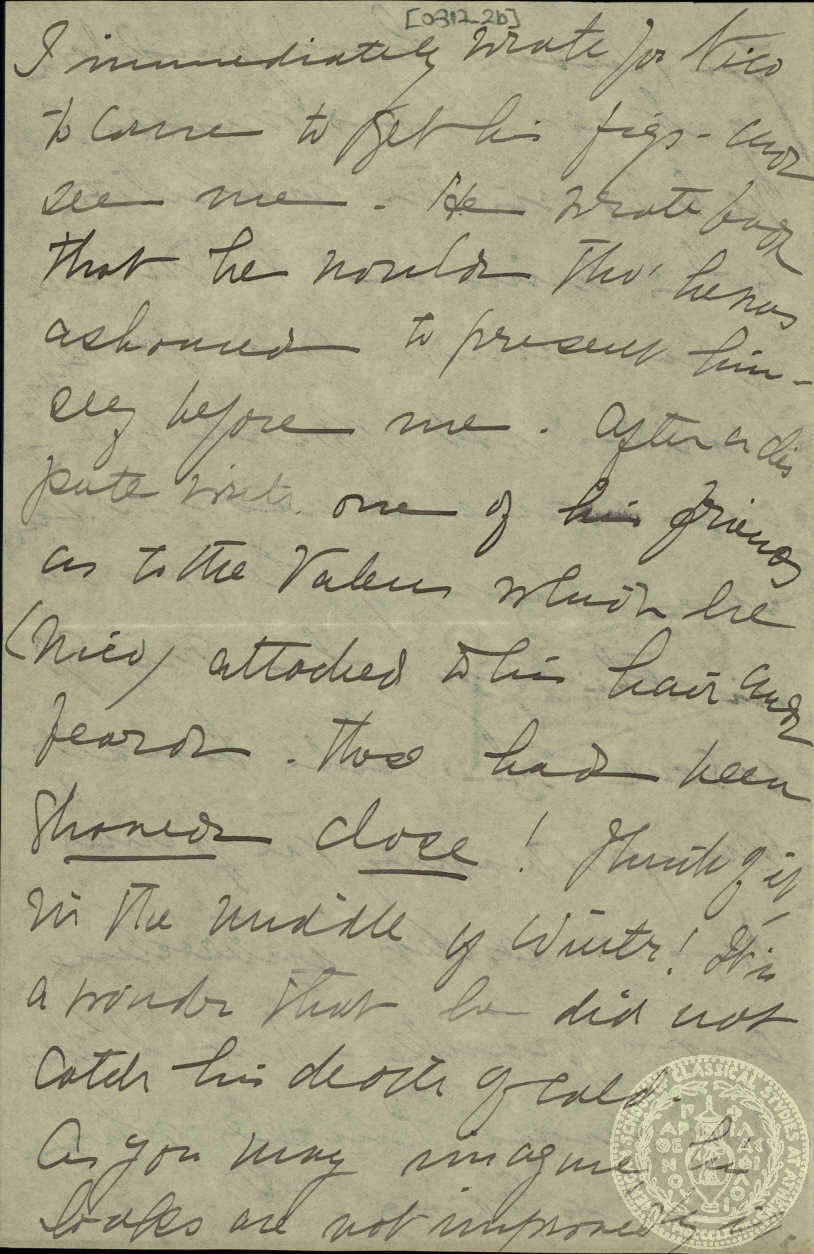 [0312_2b]
I immediately wrote for Nico
to come to get his figs - and
see me - He wrote back
that he would tho' he was
ashamed to present him-
self before me. After a dis
pute with one of his friends
as to the value which he
(Nico) attached to his hair and
beard. Those had been
Shaved close! Think of it
in the middle of winter! It is
a wonder that he did not
catch his death of cold.
As you may imagine his
looks are not improved by it.
CLASSICAL STUDIES AT